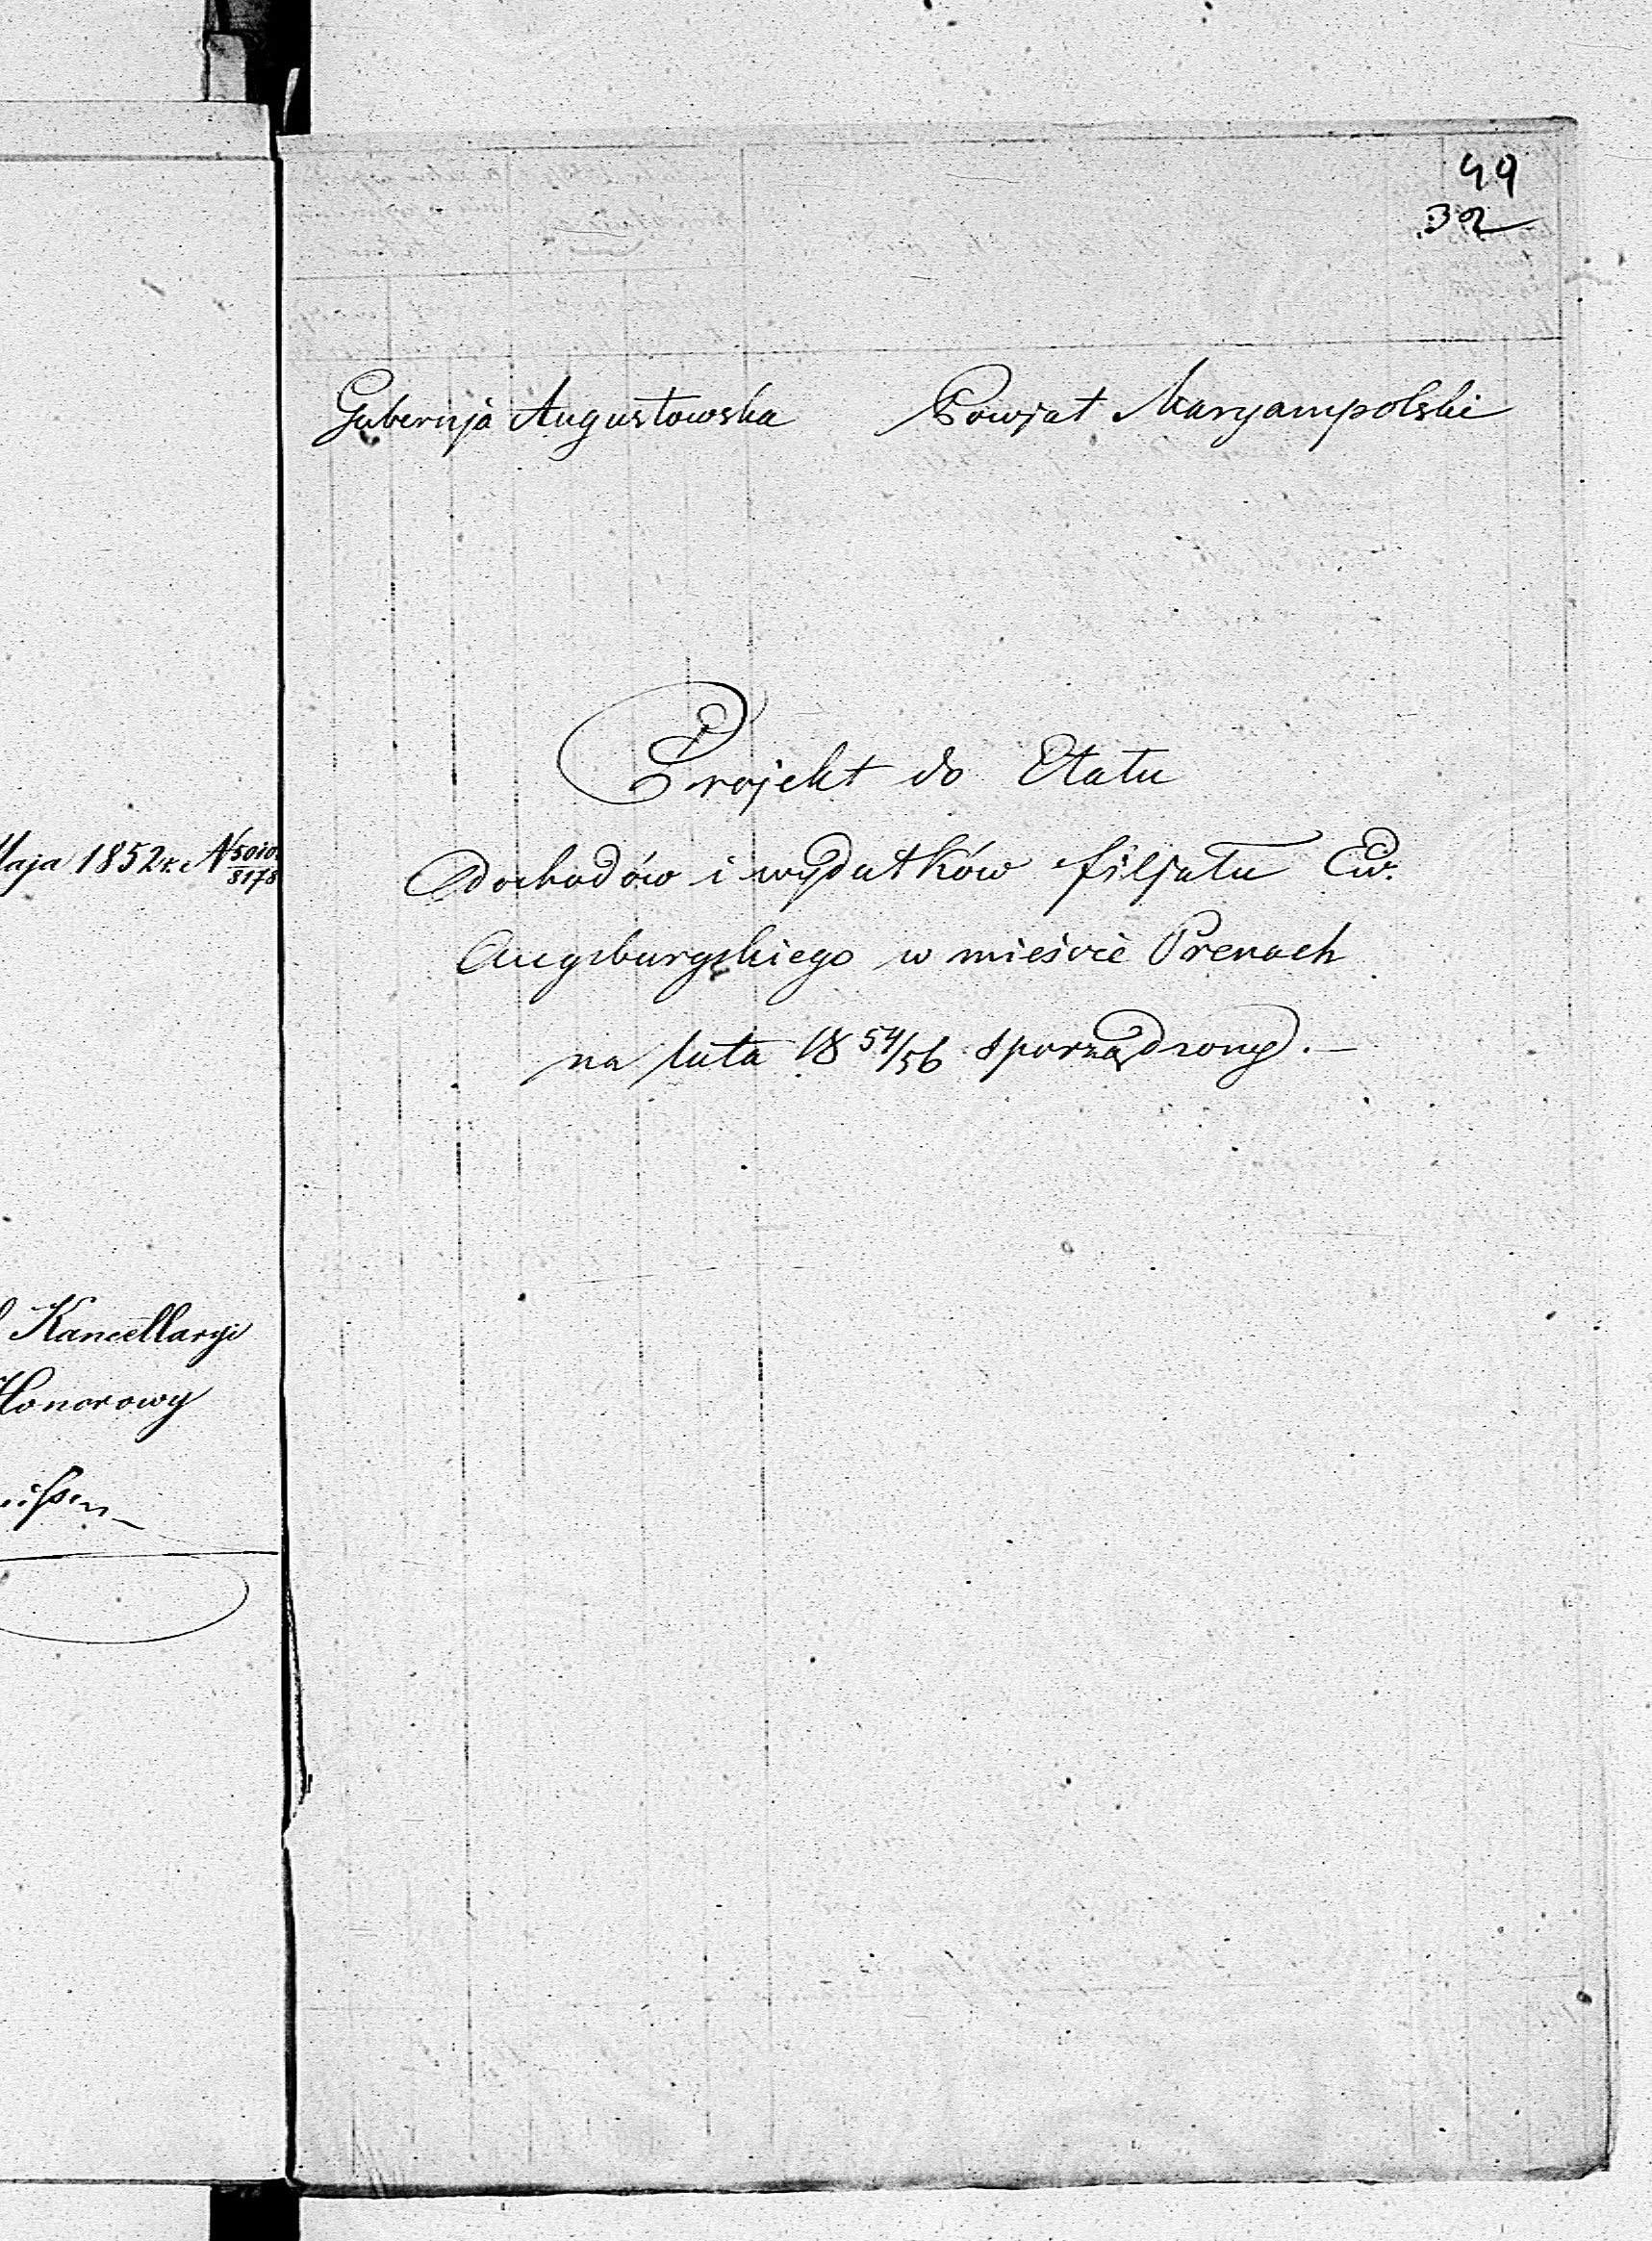 49
32
Gubernja Augustowska Powjat Maryampolski
Projekt do Etatu
Dochodów i wydatków filjatu Ew.
Augsburgskiego w mieście Prenach
na lata 18 54/56 sporządzony.—
Maja 1852 r. N 5010/8178
Kancellaryi
Honorowy